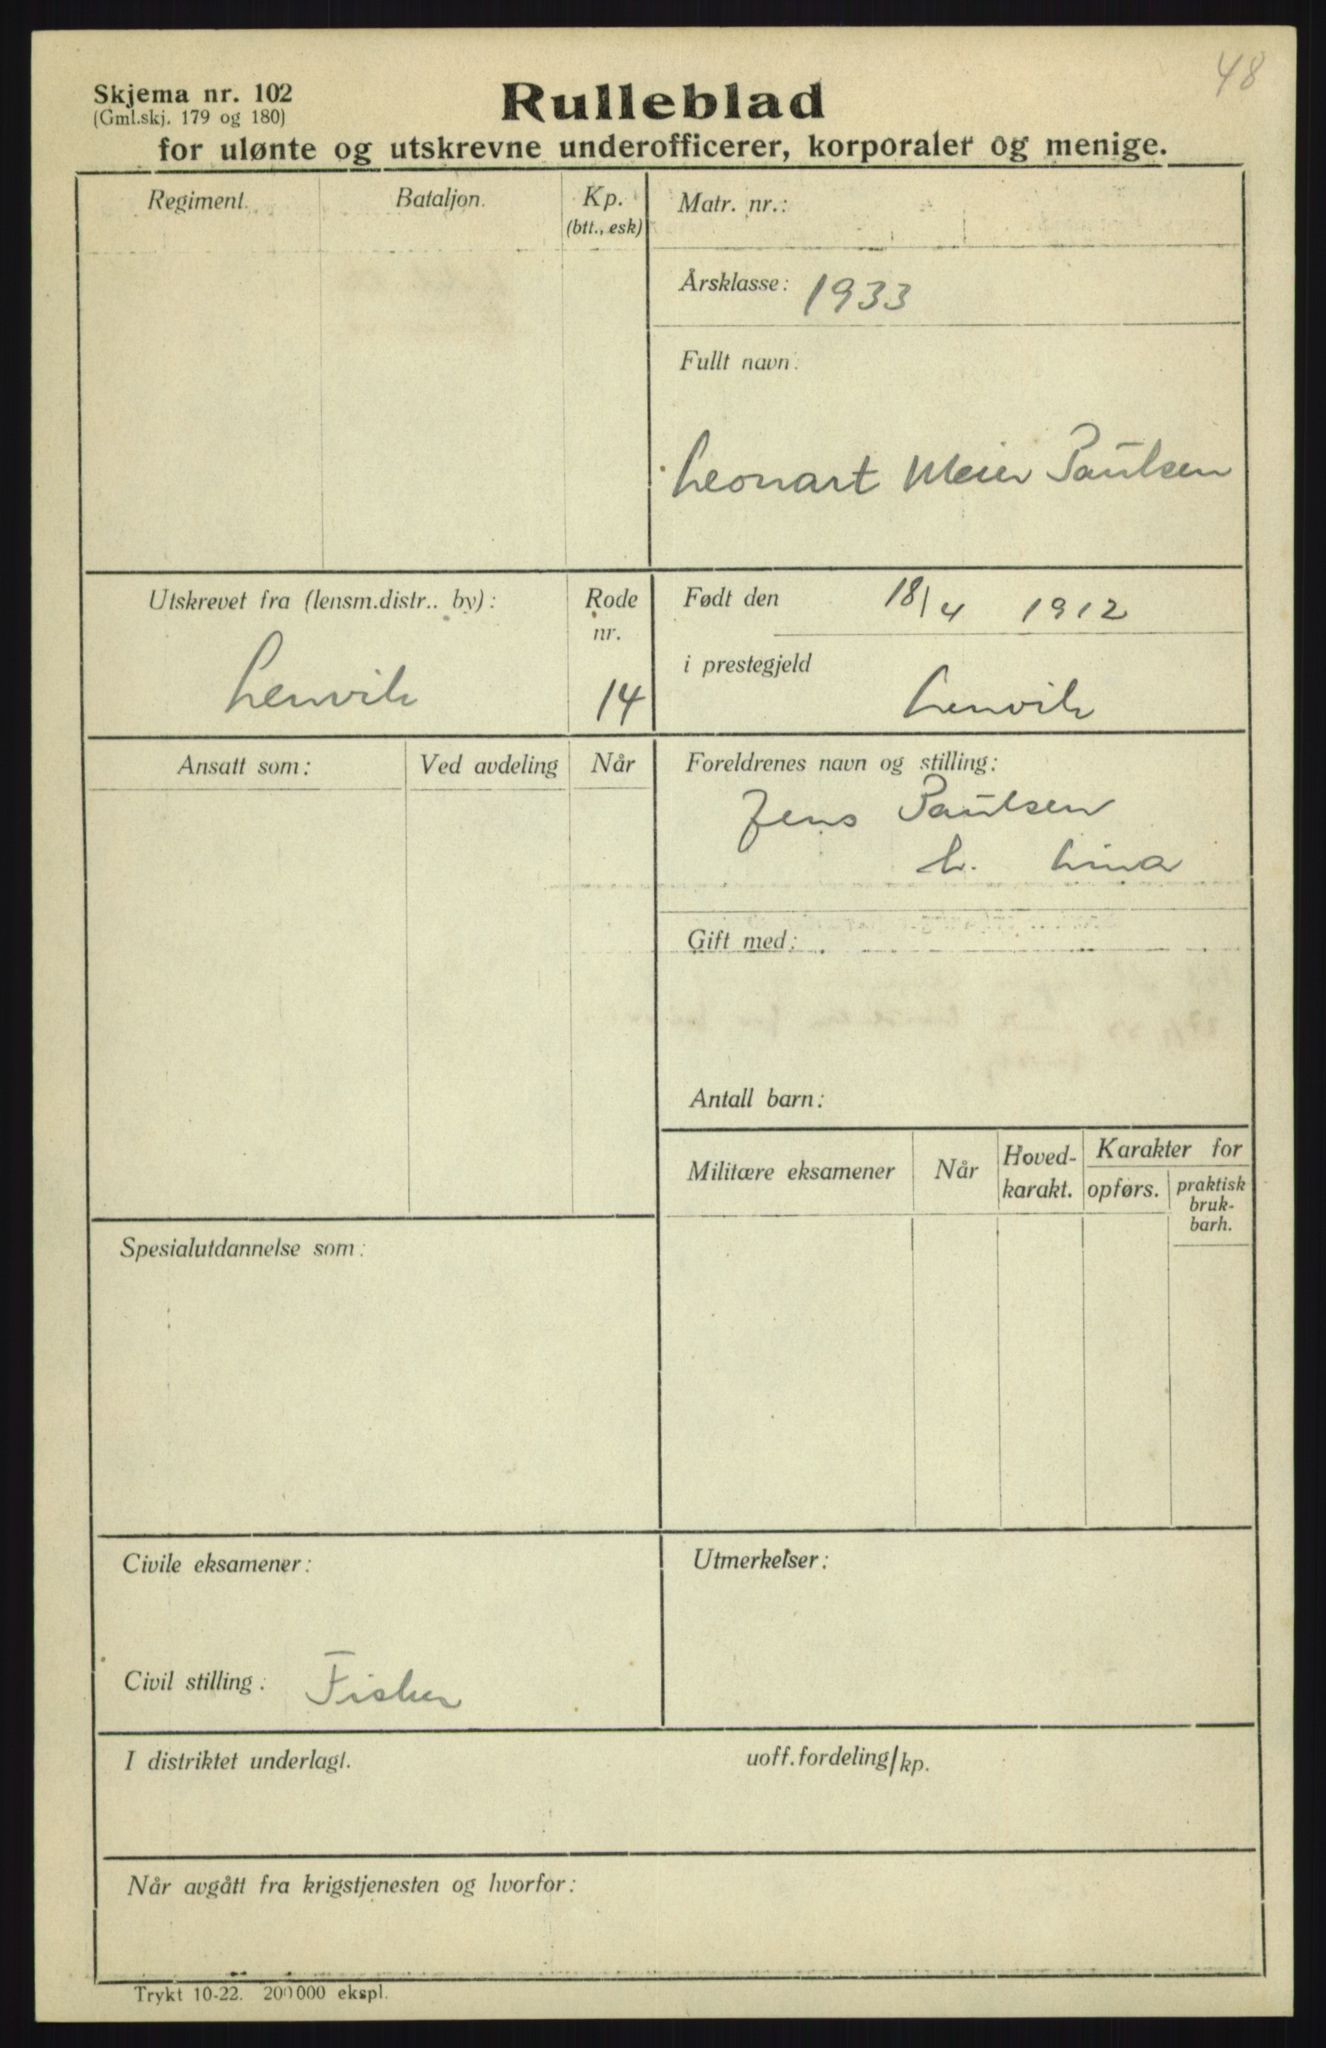 48
Skjema nr. 102
(Gml.skj. 179 og 180)
Rulleblad
for ulønte og utskrevne underofficerer, korporaler og menige.
Regiment.
Bataljon.
Kp.
(btt., esk)
Matr. nr.:
Årsklasse: 1933
Fullt navn:
Leonart Meier Paulsen
Utskrevet fra (lensm.distr.. by):
Lenvik
Rode
nr.
14
Født den 18/4 1912
i prestegjeld
Lenvik
Ansatt som:
Ved avdeling
Når
Foreldrenes navn og stilling:
Jens Paulsen
h. Lina
Gift med:
Antall barn:
Militære eksamener
Når
Hoved-
karakt.
Karakter for
opførs.
praktisk
bruk-
barh.
Spesialutdannelse som:
Civile eksamener:
Civil stilling: Fisker
Utmerkelser:
I distriktet underlagt.
uoff.fordeling/kp.
Når avgått fra krigstjenesten og hvorfor:
Trykt 10-22. 200000 ekspl.